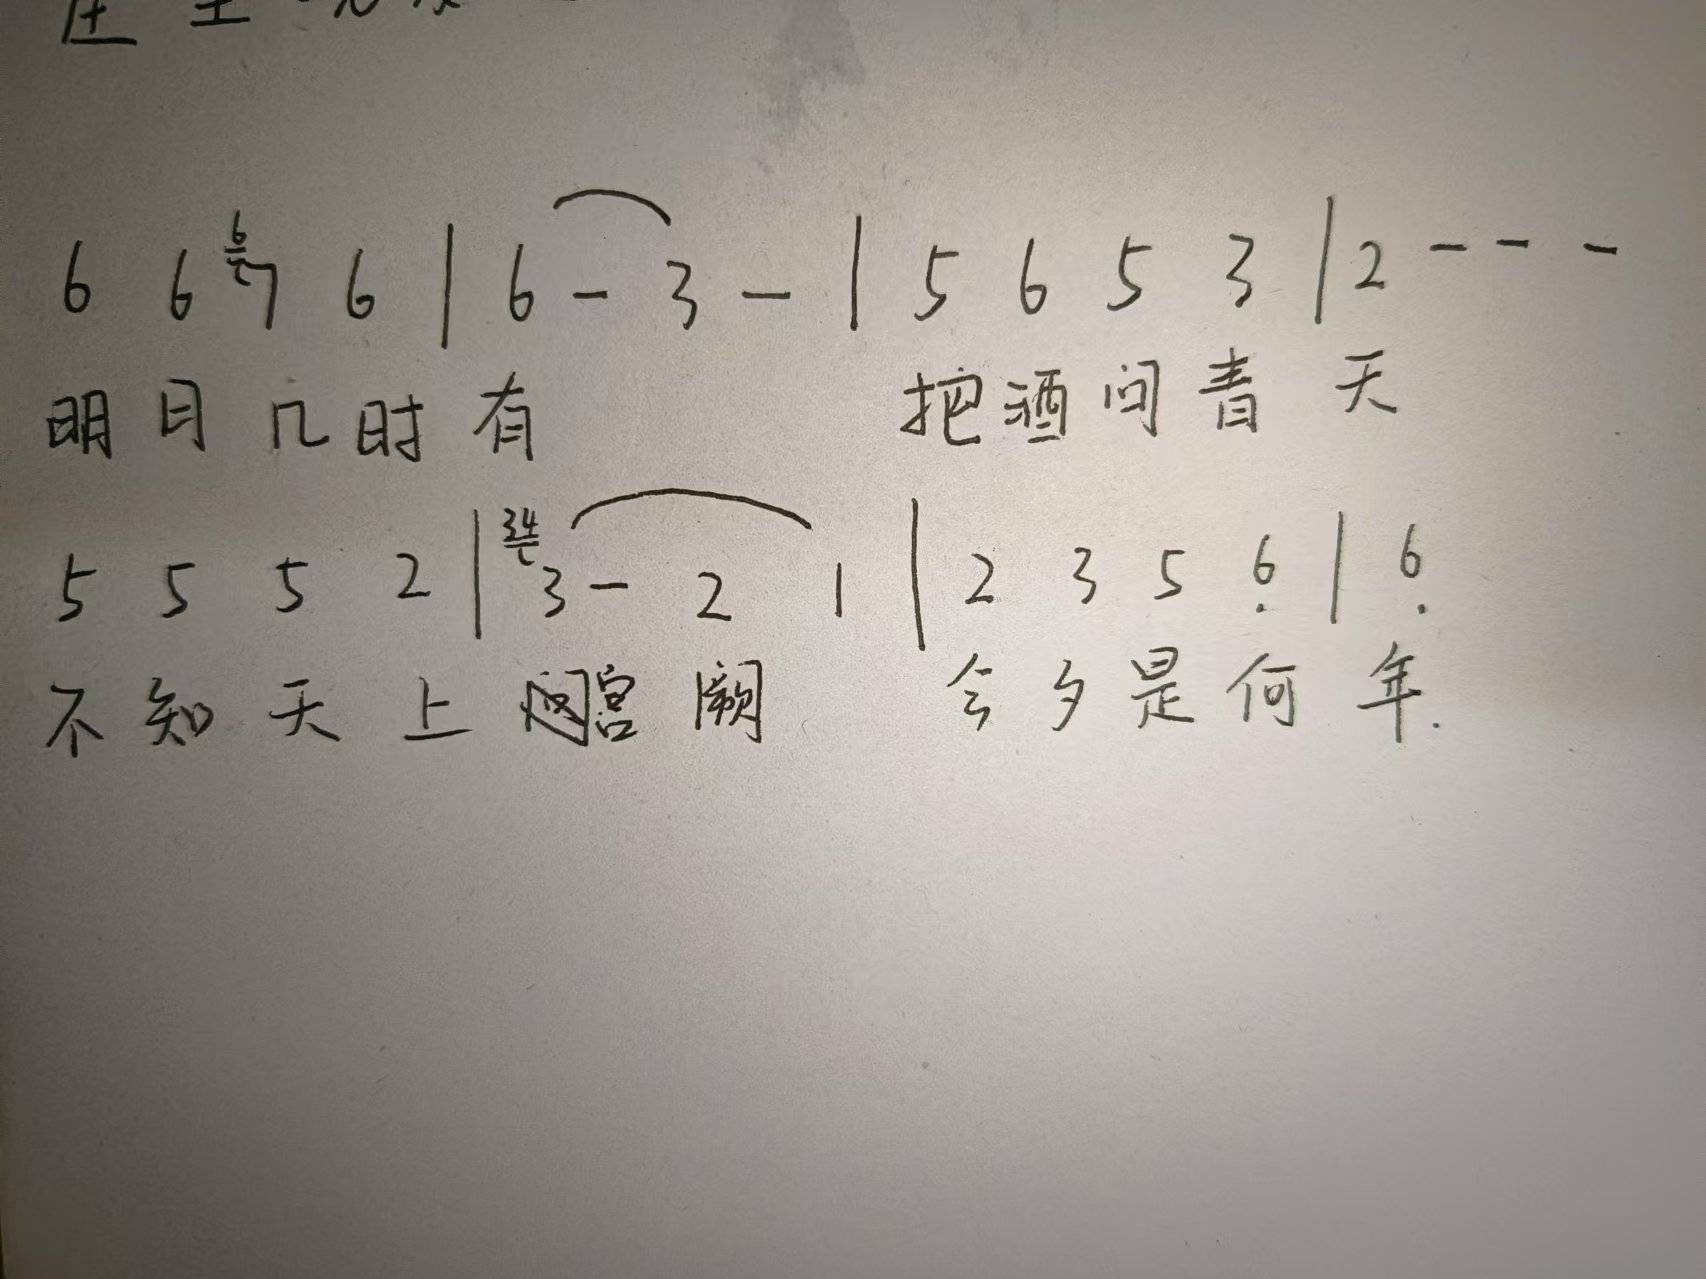 6 6 6 7 6 | 6 - 3 - | 5 6 5 3 | 2 - - -
明月几时有 把酒问青天
5 5 5 2 | 34 3 - 2 1 | 2 3 5 6̣ | 6̣
不知天上宫阙 今夕是何年.